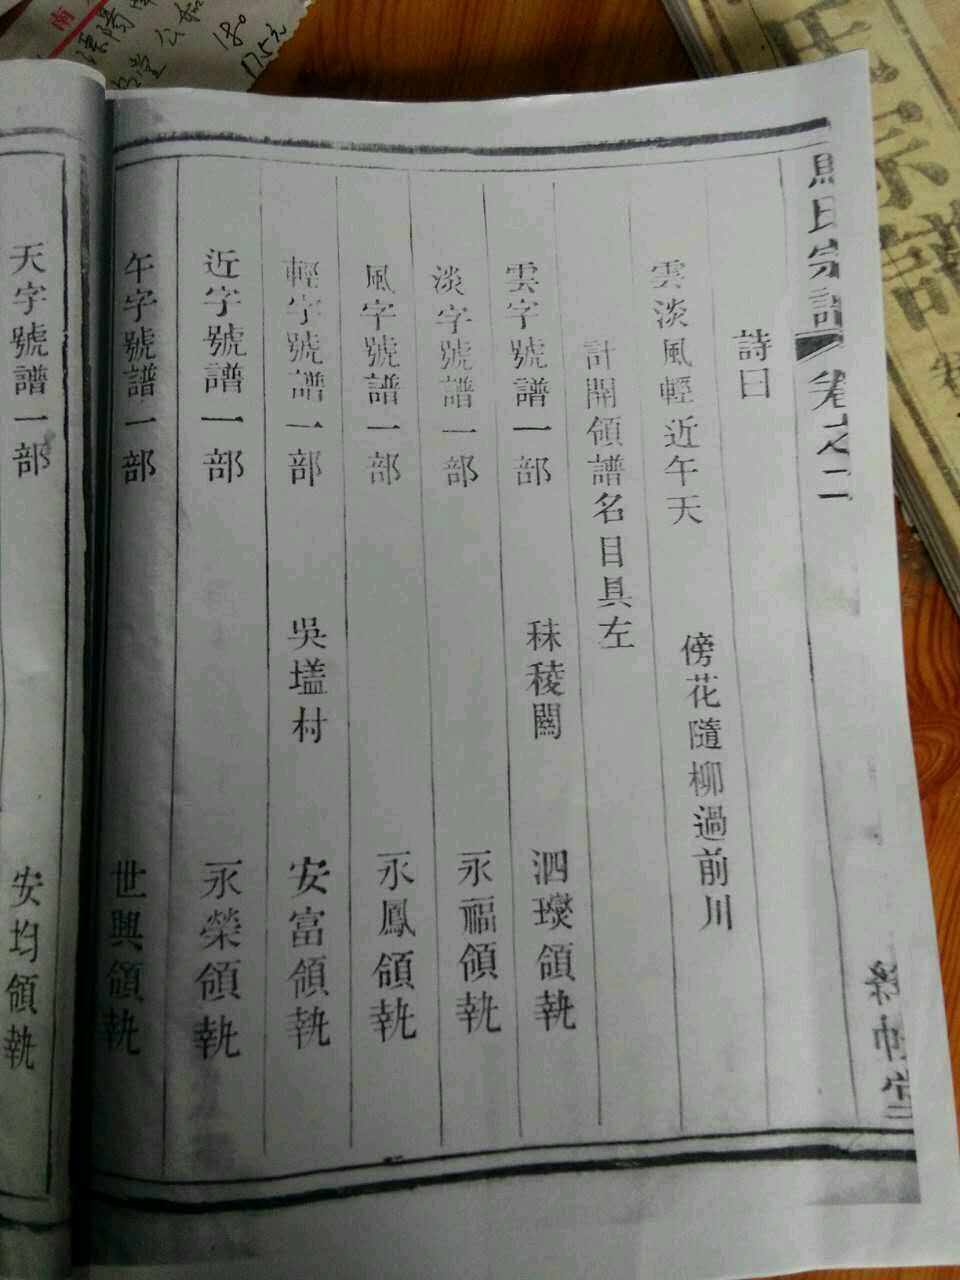 馬氏宗譜 卷之二
詩曰
雲淡風輕近午天 傍花隨柳過前川
計開領譜名目具左
雲字號譜一部 秣稜関 泗璦領執
淡字號譜一部 永福領執
風字號譜一部 永鳳領執
輕字號譜一部 吳墭村 安富領執
近字號譜一部 永榮領執
午字號譜一部 世興領執
天字號譜一部 安均領執
絳帳堂
氏宗譜
南
公
180
175元